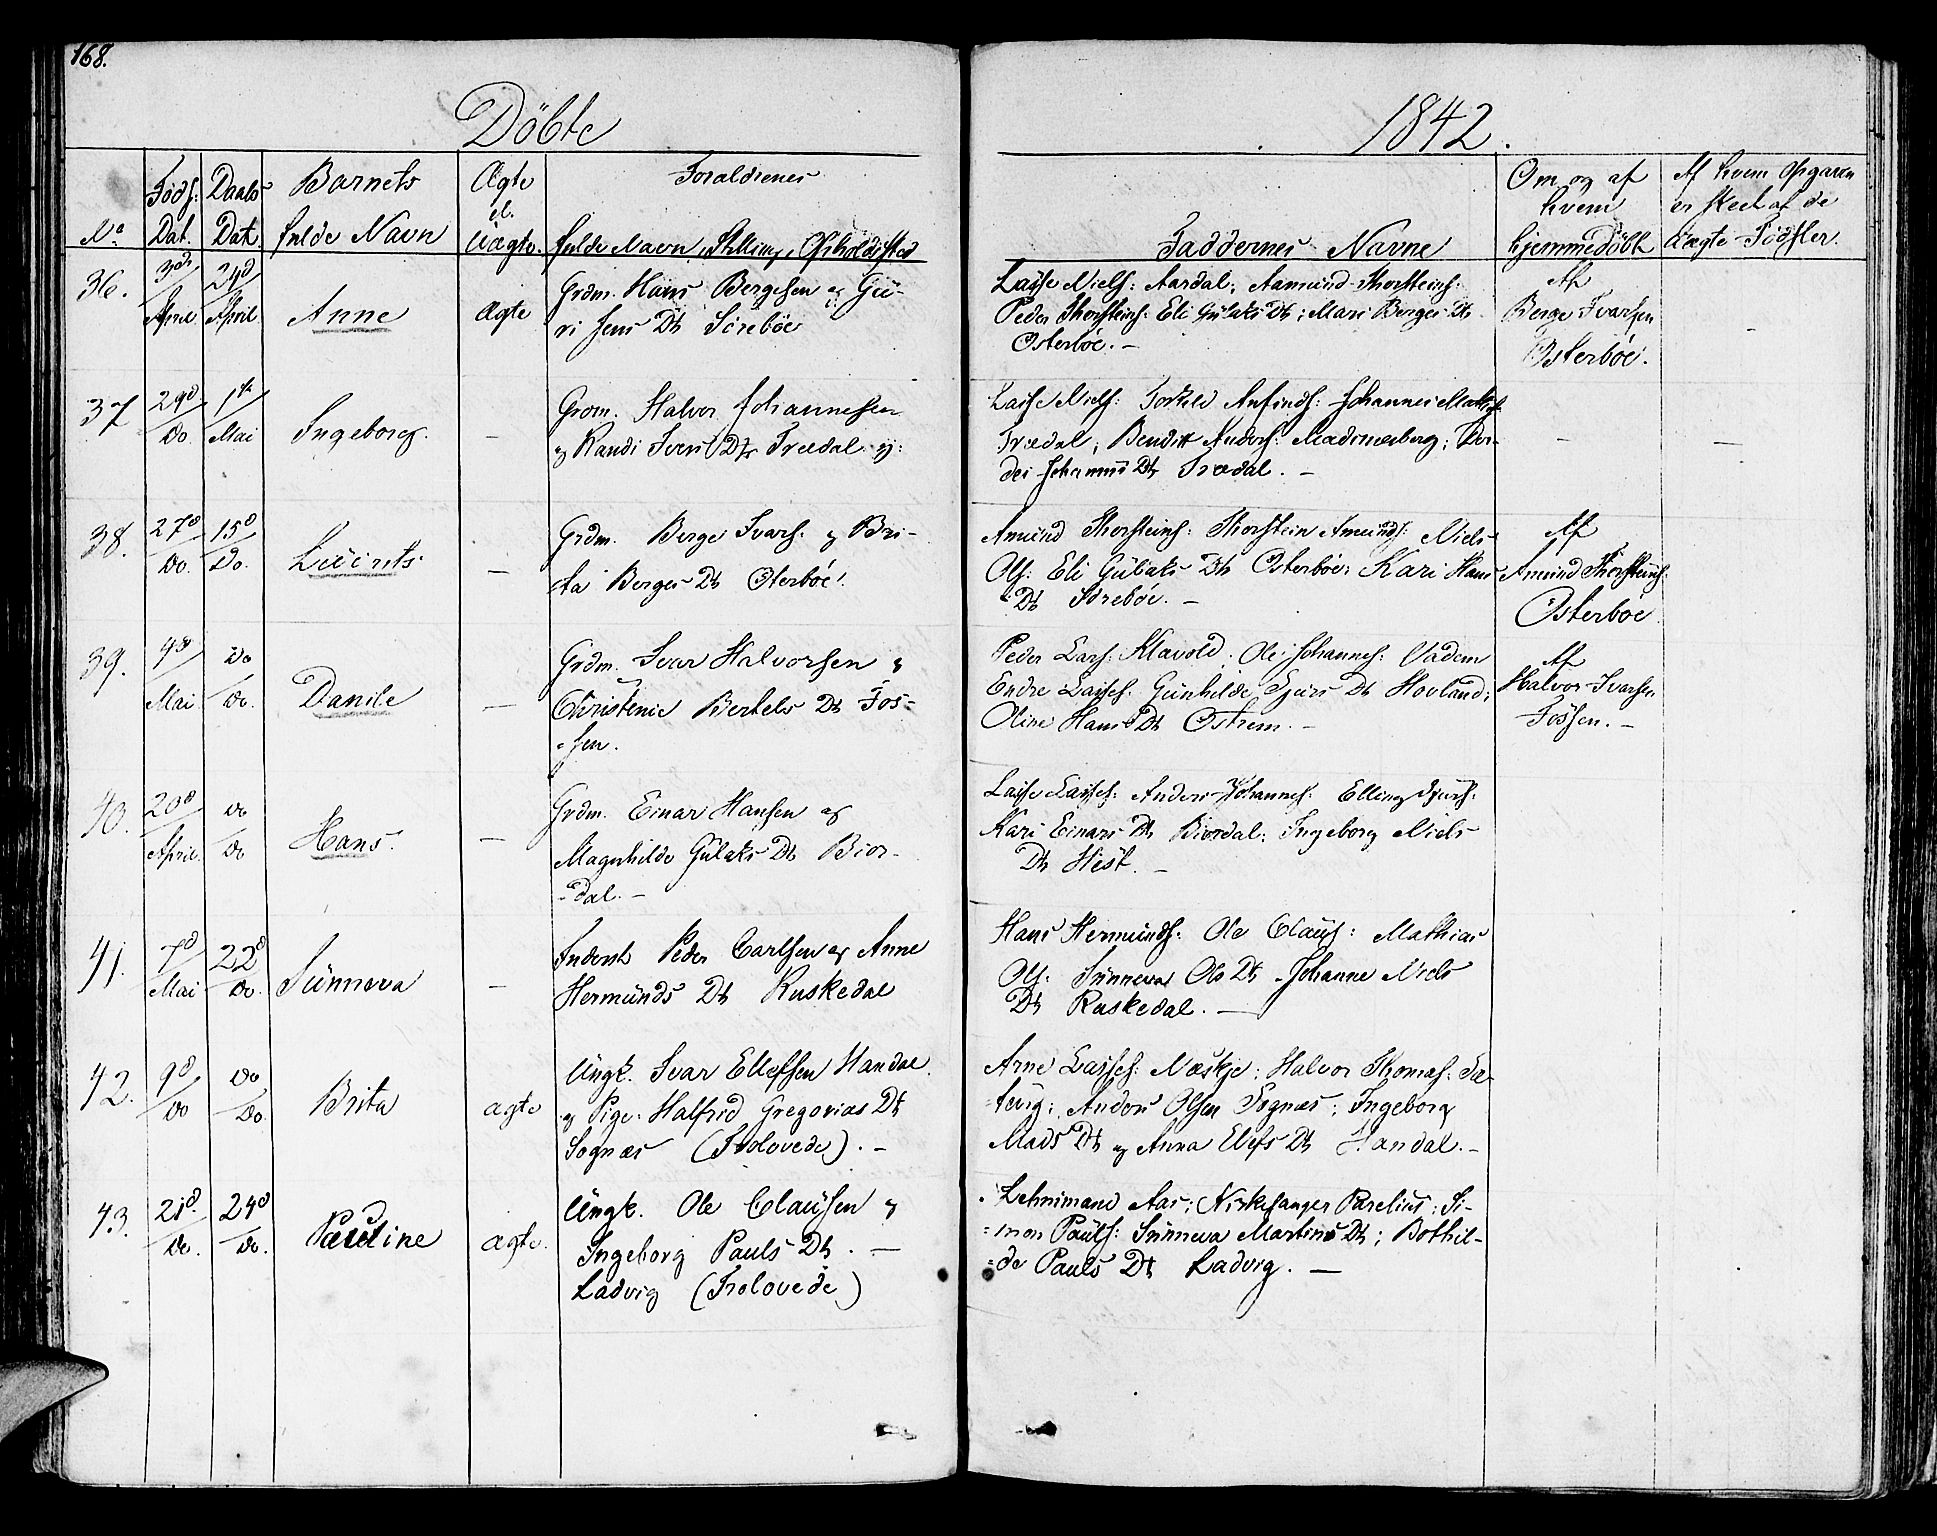 168.
Döbte
1842.
No
Föds:
Dat.
Daabs
Dat.
Barnets
fulde Navn
Ægte
el.
Uægte.
Foraldrenes
fulde Navn, Stilling, Opholdssted
Faddernes Navne
Om og af
hvem
hjemmedöbt
Af hvem Opgaven
er skeet af de
uægte Födsler.
36. 3d/April 24d/April Anne Ægte
Grdm. Hans Bergesen og Gü-
ri Jens Dt Söreböe
Lasse Niels: Aardal; Aamund Thorsteins:
Peder Thorsteins: Eli Gülaks Dt; Mari Berges Dt
Osterböe. –
Af
Berge Ivarsen
Osterböe. –
37. 29d/do 1te/Mai Ingeborg. –
Grdm. Halvor Johannesen
og Randi Ivers Dtr Trædal
Lasse Niels: Torkild Anfinds: Johannes
Trædal; Benditt Anders: ; Kor-
dei Johannes Dt Trædal. –
– –
38. 27d/do. 15d/do. Lüürits –
Grdm. Berge Ivars: og Bri-
ta Berges Dt Osterböe.
Amünd Thorsteins: Thorstein Amünds: Niels
Ols: Eli Gülaks Dtr Osterböe; Kari Hans
Dt Söreböe. –
Af
Amünd Thorsteins:
Osterböe
39. 4d/Mai do/do. Danile –
Grdm. Ivar Halvorsen og
Christenie Bertels Dt Fos-
-sen.
Peder Lars: Klavold. Ole Johannes: Vadem
Endre Lasses: Günhilde Sjurs Dt Hovland;
Oline Hans Dt Ostrem. –
Af
Halvor Ivarsen
Fossen. –
40. 20d/April do/do Hans. –
Grdm. Einar Hansen og
Magnhilde Gülaks Dt Bior-
-dal. –
Lasse Lasses: Anders Johannes: Elling Sjurs:
Kari Einars Dt Biordal; Ingeborg Niels
Dt Hest. –
41. 7d/Mai 22d/do. Sünneva –
Inderst Peder Carlsen og Anne
Hermünds Dt Ruskedal
Hans Hermünds: Ole Claüs: Mathias
Ols: Sünneva Ols Dt Johanne Niels
Dt Raskedal. –
42. 9d/do do/do. Brita ægte
Ungk. Ivar Ellefsen Handal
og Pige Halfrid Gregorias Dt
Sognæs (Trolovede). –
Arne Lasses: Næskje; Halvor Thomas: Sæ-
-tevig; Anders Olsen Sognæs; Ingeborg
Mads Dt og Anna Elefs Dt Handal. –
43. 21d./do. 24d/do. Pauline ægte.
Ungk. Ole Claüsen og
Ingeborg Pauls Dt. –
Ladvig (Trolovede)
Lehnimand Aas; Kirkesanger Parelius; Si-
=mon Paüls: Sünneva Martins Dt; Bothil-
=de Pauls Dt Ladvig. –